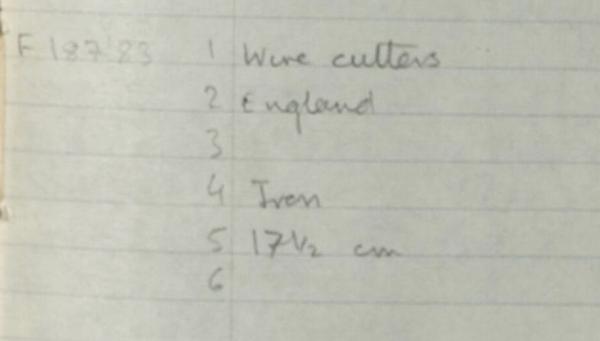 F 187'83 1 Wire cutters
2 England
3
4 Iron
5 17½ cm
6